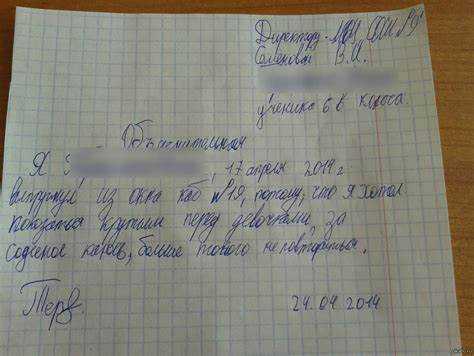 Директору МОУ СОШ №
Семеновой В.И.
ученика 6 в класса.
Объяснительная
Я 17 апреля 2014 г
выпрыгнул из окна каб №19, потому, что я хотел
показаться крутым перед девочками, за
содеянное каюсь, больше такого не повториться.
24.04.2014